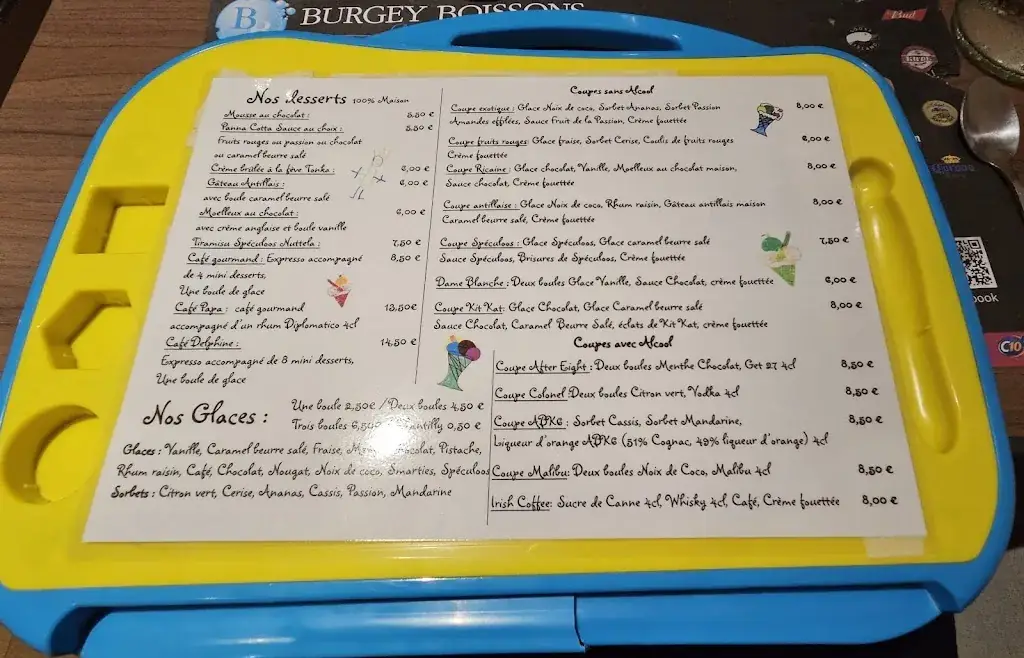 B.
BURGEY BOISSONS
Bud
Nos Desserts 100% Maison
Mousse au chocolat : 5,50 €
Panna Cotta Sauce au choix : 5,50 €
Fruits rouges ou passion ou chocolat
ou caramel beurre salé
Crème brûlée à la fève Tonka : 6,00 €
Gâteau Antillais : 6,00 €
avec boule caramel beurre salé
Moelleux au chocolat : 6,00 €
avec crème anglaise et boule vanille
Tiramisu Spéculoos Nuttela : 7,50 €
Café gourmand : Expresso accompagné 8,50 €
de 4 mini desserts,
Une boule de glace
Café Papa : café gourmand 13,50€
accompagné d'un rhum Diplomatico 4cl
Café Delphine : 14,50 €
Expresso accompagné de 8 mini desserts,
Une boule de glace
Nos Glaces :
Une boule 2,50€ / Deux boules 4,50 €
Trois boules 6,50€ 0,50 €
Glaces : Vanille, Caramel beurre salé, Fraise, Chocolat, Pistache,
Rhum raisin, Café, Chocolat, Nougat, Noix de coco, Smarties, Spéculoos
Sorbets : Citron vert, Cerise, Ananas, Cassis, Passion, Mandarine
Coupes sans Alcool
Coupe exotique : Glace Noix de coco, Sorbet Ananas, Sorbet Passion 8,00 €
Amandes effilées, Sauce Fruit de la Passion, Crème fouettée
Coupe fruits rouges: Glace fraise, Sorbet Cerise, Coulis de fruits rouges 6,00 €
Crème fouettée
Coupe Ricaine : Glace chocolat, Vanille, Moelleux au chocolat maison, 8,00 €
Sauce chocolat, Crème fouettée
Coupe antillaise : Glace Noix de coco, Rhum raisin, Gâteau antillais maison 8,00 €
Caramel beurre salé, Crème fouettée
Coupe Spéculoos : Glace Spéculoos, Glace caramel beurre salé 7,50 €
Sauce Spéculoos, Brisures de Spéculoos, Crème fouettée
Dame Blanche : Deux boules Glace Vanille, Sauce Chocolat, crème fouettée 6,00 €
Coupe Kit Kat: Glace Chocolat, Glace Caramel beurre salé 8,00 €
Sauce Chocolat, Caramel Beurre Salé, éclats de Kit Kat, crème fouettée
Coupes avec Alcool
Coupe After Eight : Deux boules Menthe Chocolat, Get 27 4cl 8,50 €
Coupe Colonel :Deux boules Citron vert, Vodka 4cl 8,50 €
Coupe ADK6 : Sorbet Cassis, Sorbet Mandarine, 8,50 €
Liqueur d'orange ADK6 (51% Cognac, 49% liqueur d'orange) 4cl
Coupe Malibu: Deux boules Noix de Coco, Malibu 4cl 8,50 €
Irish Coffee: Sucre de Canne 4cl, Whisky 4cl, Café, Crème fouettée 8,00 €
Corona
ook
C10